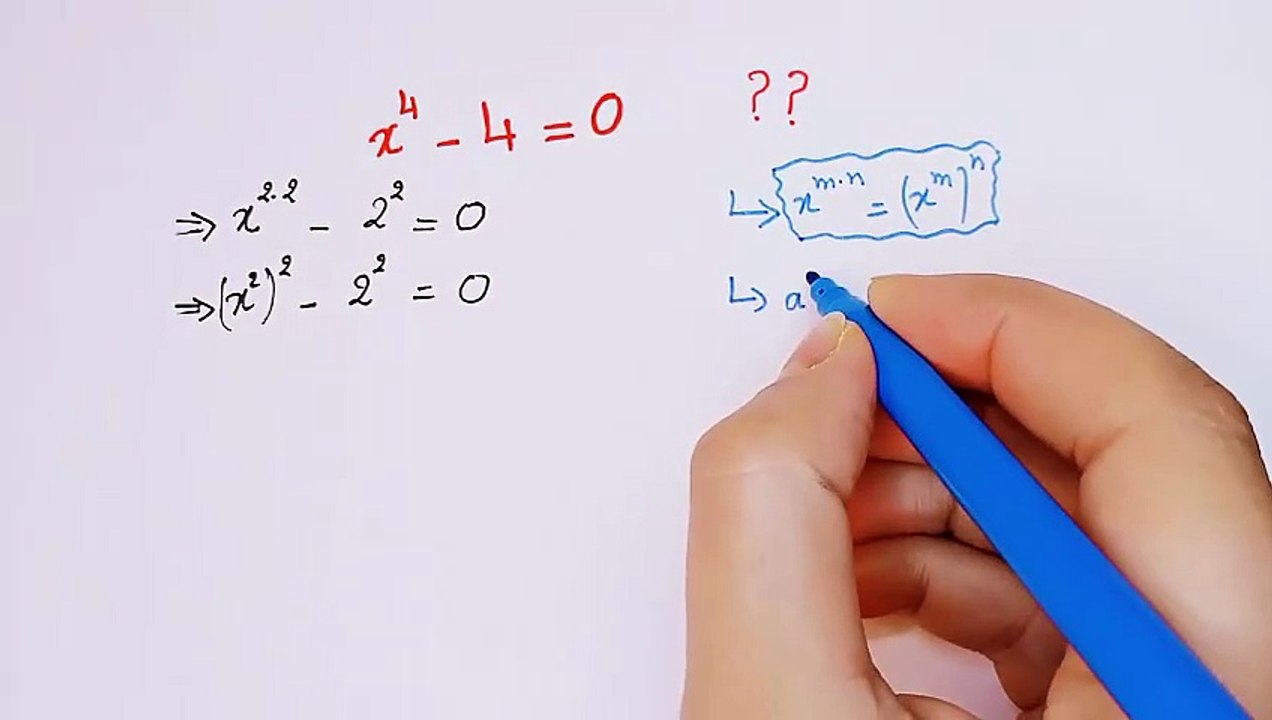 x⁴ - 4 = 0 ??
⇒ x²·² - 2² = 0
⇒ (x²)² - 2² = 0
↳ xᵐ·ⁿ = (xᵐ)ⁿ
↳ a